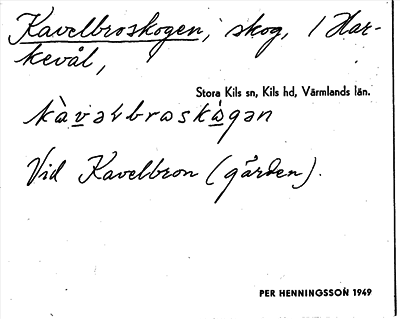 Kavelbroskogen, skog, i Har-
kevål,
Stora Kils sn, Kils hd, Värmlands län.
kàvəɫbrəskògən
Vid Kavelbron (gården).
PER HENNINGSSON 1949